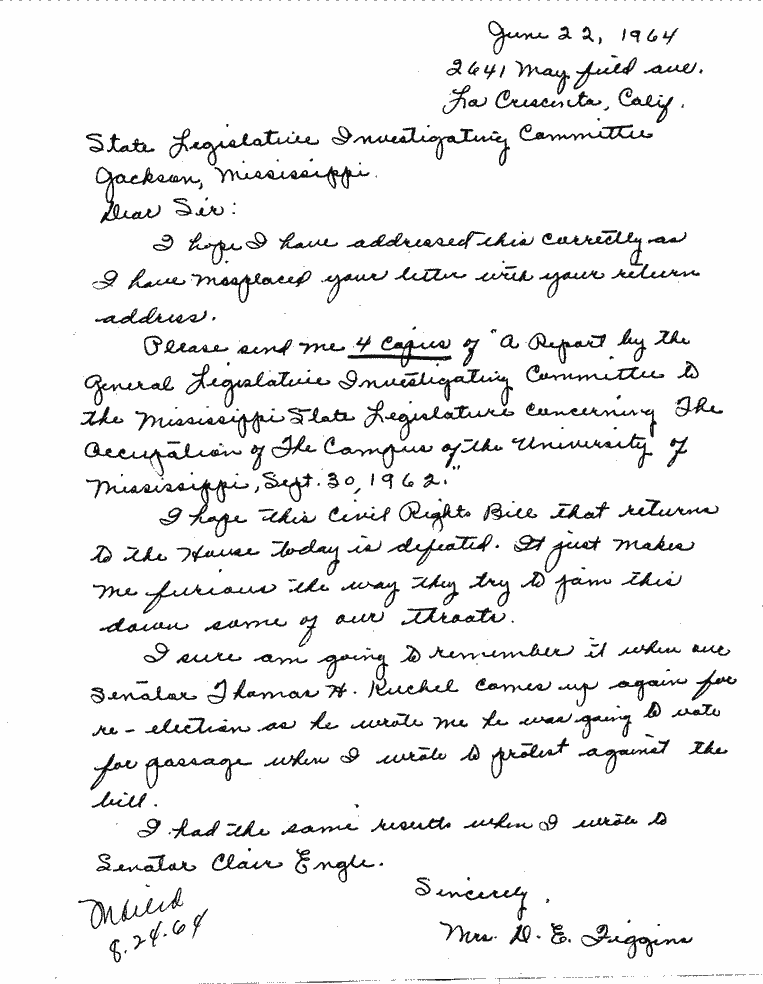 June 22, 1964
2641 Mayfield ave.
La Crescenta, Calif.
State Legislative Investigating Committee
Jackson, Mississippi.
Dear Sir:
I hope I have addressed this correctly as
I have misplaced your letter with your return
address.
Please send me 4 Copies of "A Report by the
General Legislative Investigating Committee to
the Mississippi State Legislature concerning The
Occupation of The Campus of the University of
Mississippi, Sept. 30, 1962."
I hope this Civil Rights Bill that returns
to the House today is defeated. It just makes
me furious the way they try to jam this
down some of our throats.
I sure am going to remember it when our
Senator Thomas H. Kuchel comes up again for
re-election as he wrote me he was going to vote
for passage when I wrote to protest against the
bill.
I had the same results when I wrote to
Senator Clair Engle.
Sincerely,
Mrs. D. E. Figgins
Mailed
8.24.64